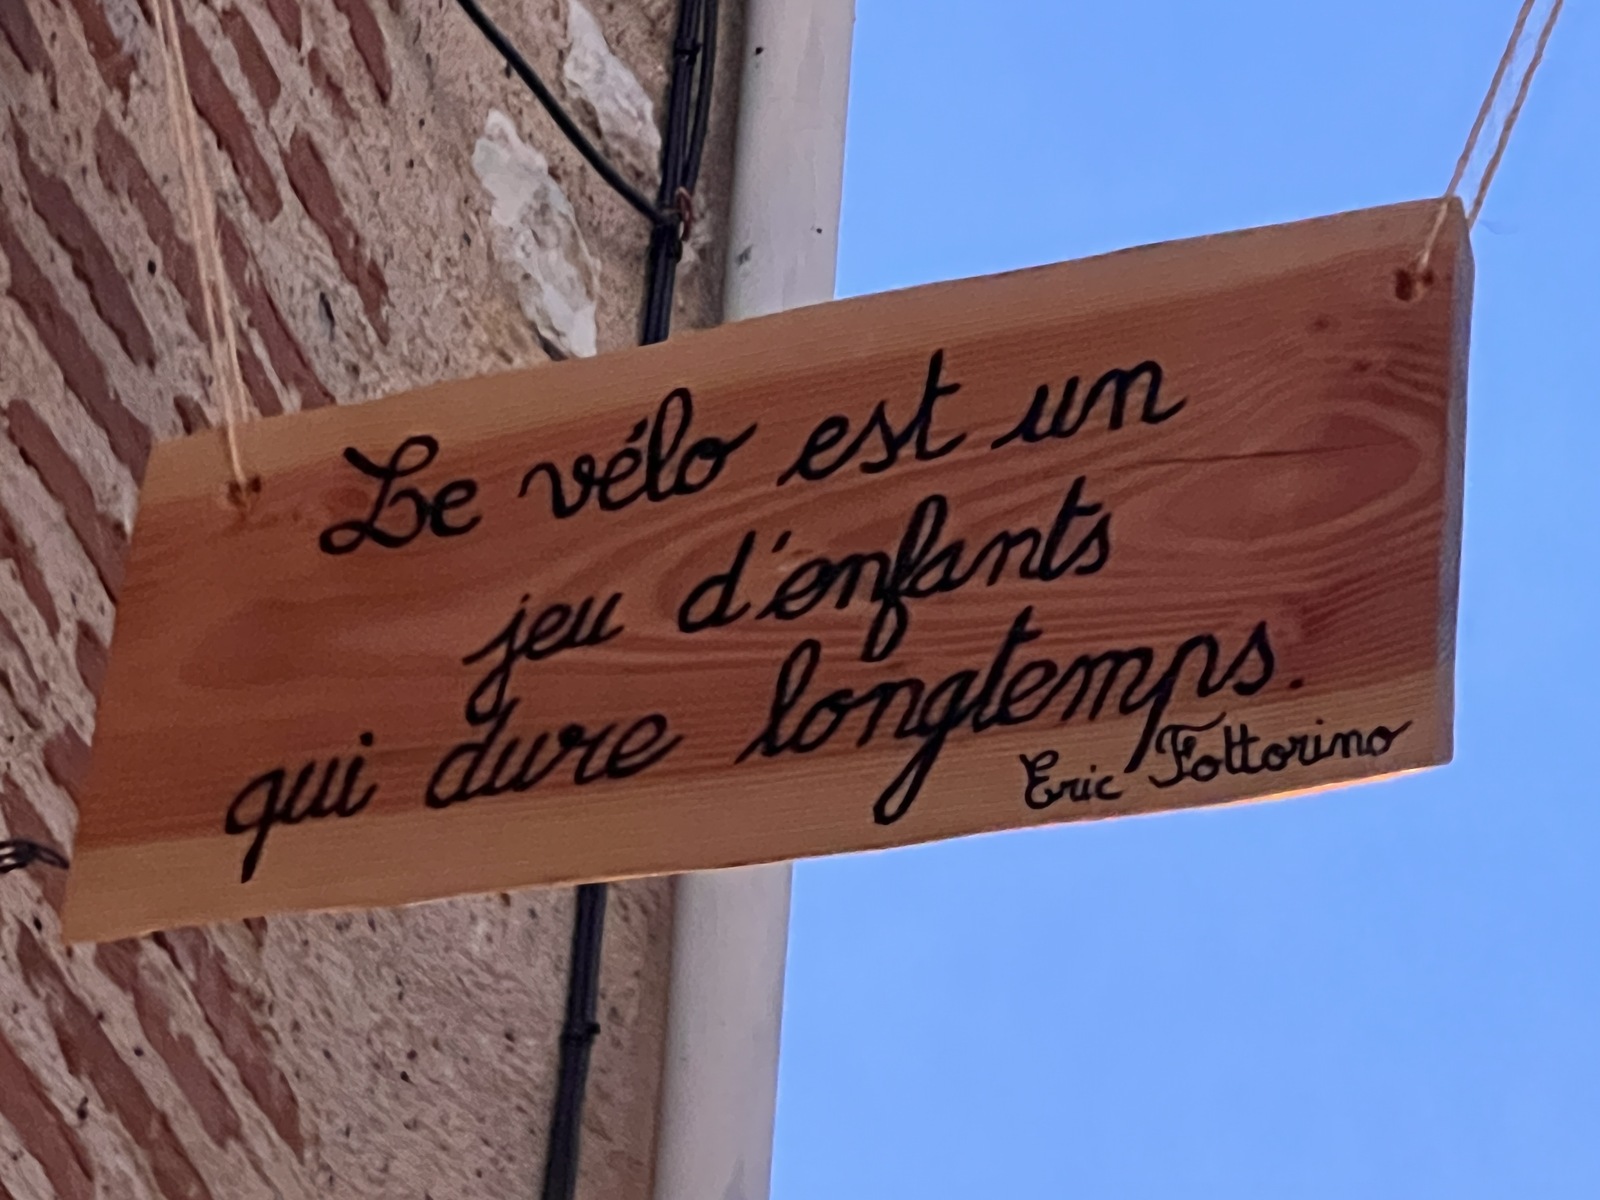 Le vélo est un
jeu d'enfants
qui dure longtemps.
Eric Fottorino